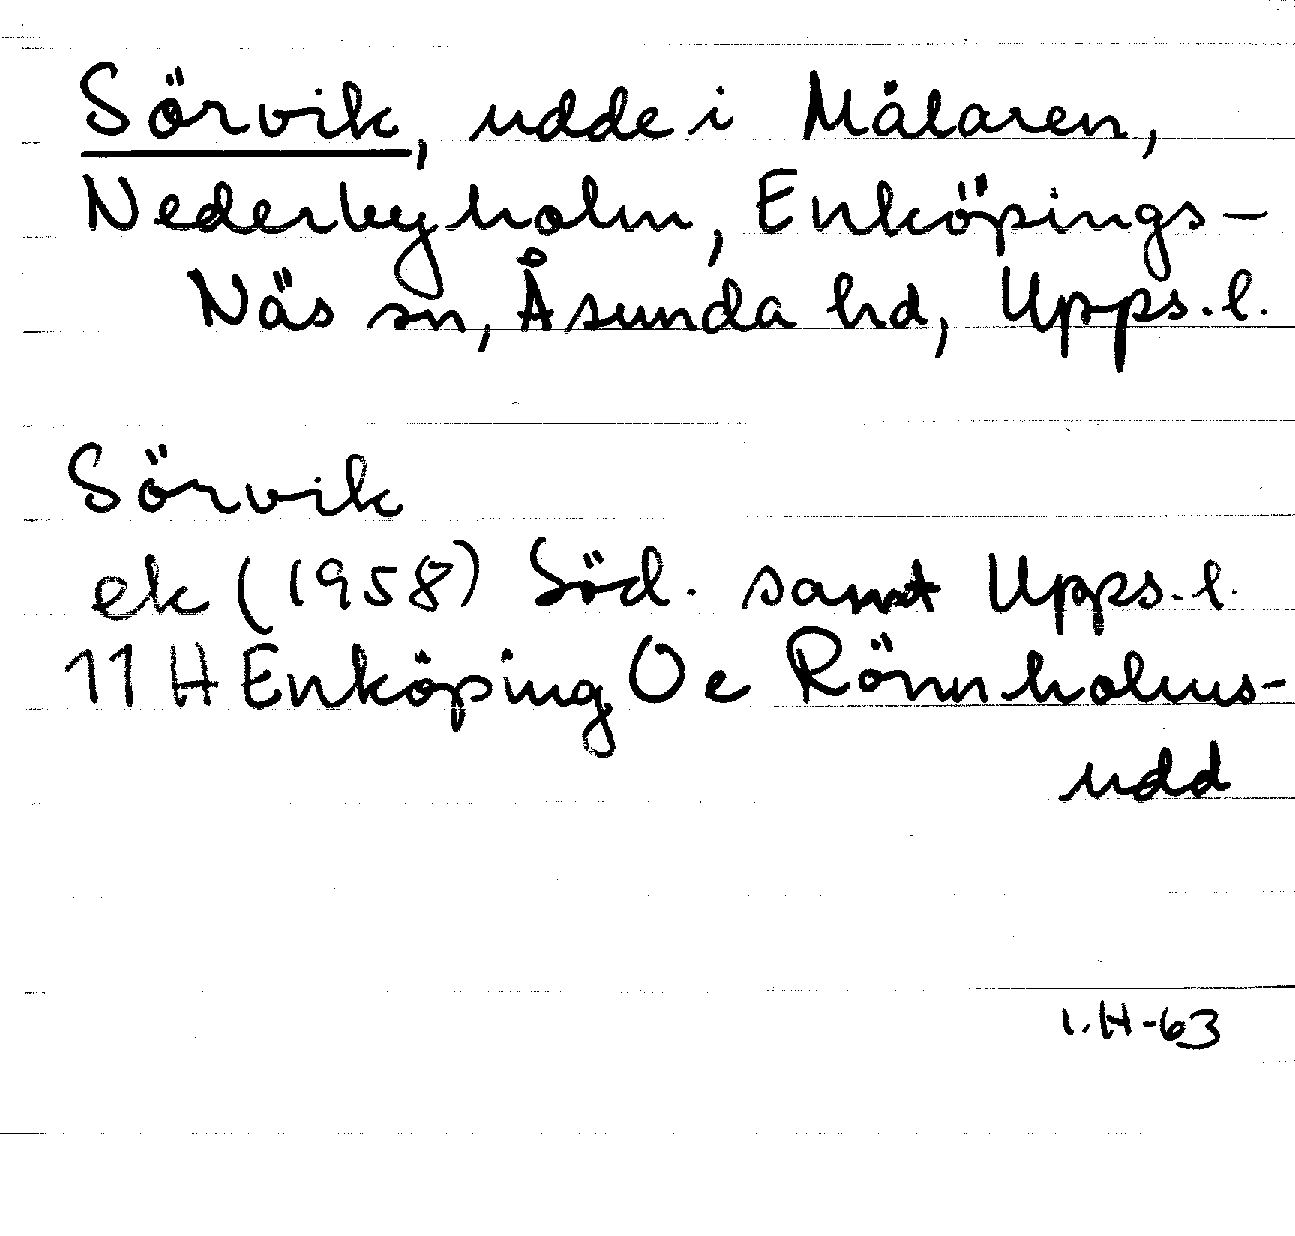 Sörvik, udde i Målaren,
Nederbyholm, Enköpings-
Näs sn, Åsunda hd, Upps.l.
Sörvik
ek (1958) Söd. samt Upps.l.
11H Enköping Oe Rönnholms-
udd
I.H-63